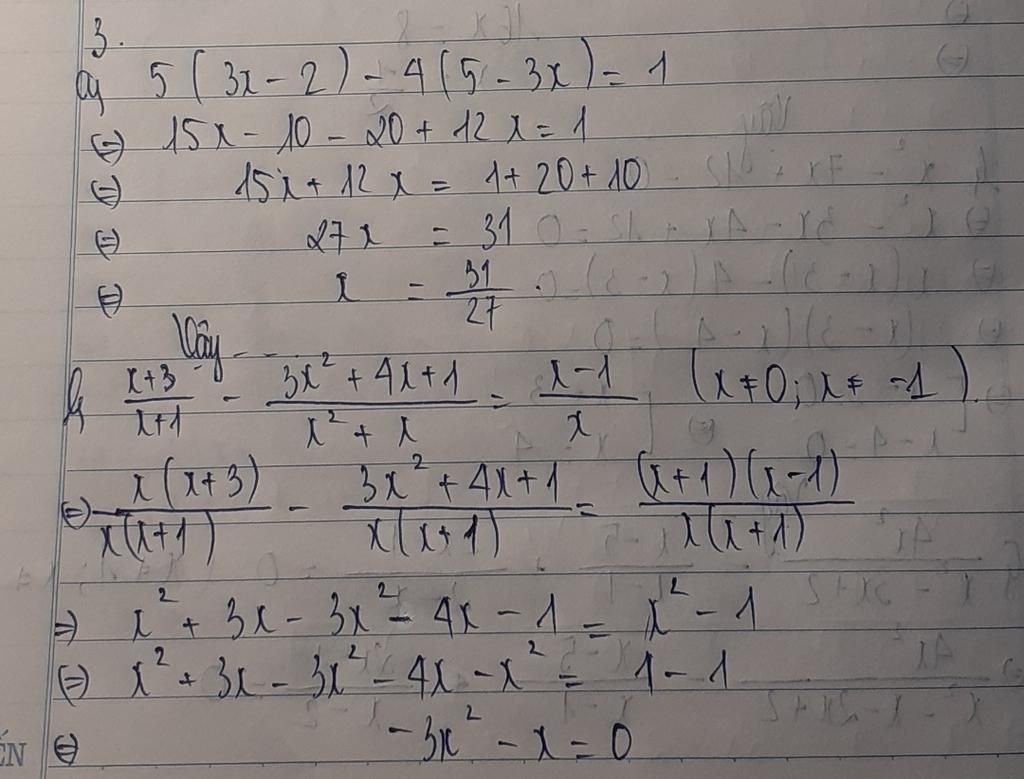 3.
a, 5(3x - 2) - 4(5 - 3x) = 1
⇔ 15x - 10 - 20 + 12x = 1
⇔ 15x + 12x = 1 + 20 + 10
⇔ 27x = 31
⇔ x = 31/27.
Vậy - -
b, (x+3)/(x+1) - (3x² + 4x + 1)/(x² + x) = (x-1)/x (x ≠ 0; x ≠ -1).
⇔ x(x+3)/x(x+1) - (3x² + 4x + 1)/x(x+1) = (x+1)(x-1)/x(x+1)
⇒ x² + 3x - 3x² - 4x - 1 = x² - 1
⇔ x² + 3x - 3x² - 4x - x² = 1 - 1
⇔ -3x² - x = 0
ẾN